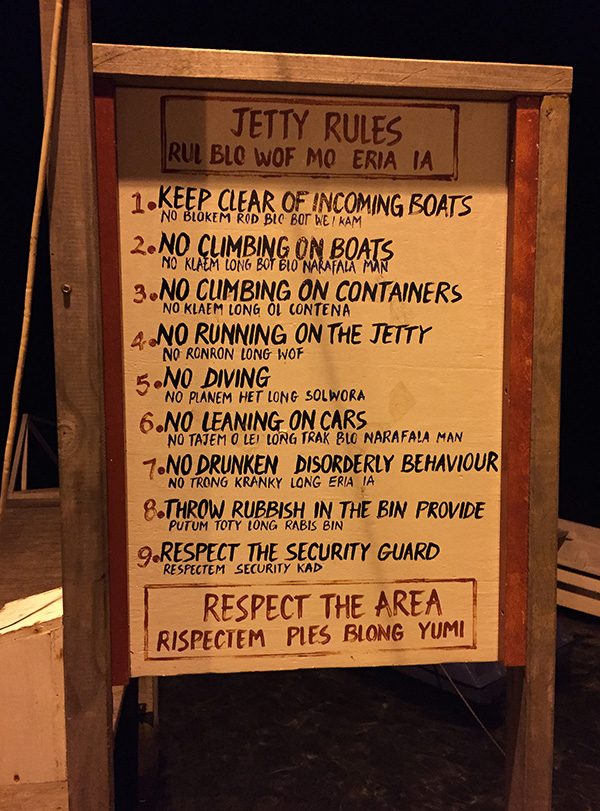 JETTY RULES
RUL BLO WOF MO ERIA IA
1. KEEP CLEAR OF INCOMING BOATS
NO BLOKEM ROD BLO BOT WE I KAM
2. NO CLIMBING ON BOATS
NO KLAEM LONG BOT BLO NARAFALA MAN
3. NO CLIMBING ON CONTAINERS
NO KLAEM LONG OL CONTENA
4. NO RUNNING ON THE JETTY
NO RONRON LONG WOF
5. NO DIVING
NO PLANEM HET LONG SOLWORA
6. NO LEANING ON CARS
NO TAJEM O LEI LONG TRAK BLO NARAFALA MAN
7. NO DRUNKEN DISORDERLY BEHAVIOUR
NO TRONG KRANKY LONG ERIA IA
8. THROW RUBBISH IN THE BIN PROVIDE
PUTUM TOTY LONG RABIS BIN
9. RESPECT THE SECURITY GUARD
RESPECTEM SECURITY KAD
RESPECT THE AREA
RISPECTEM PLES BLONG YUMI